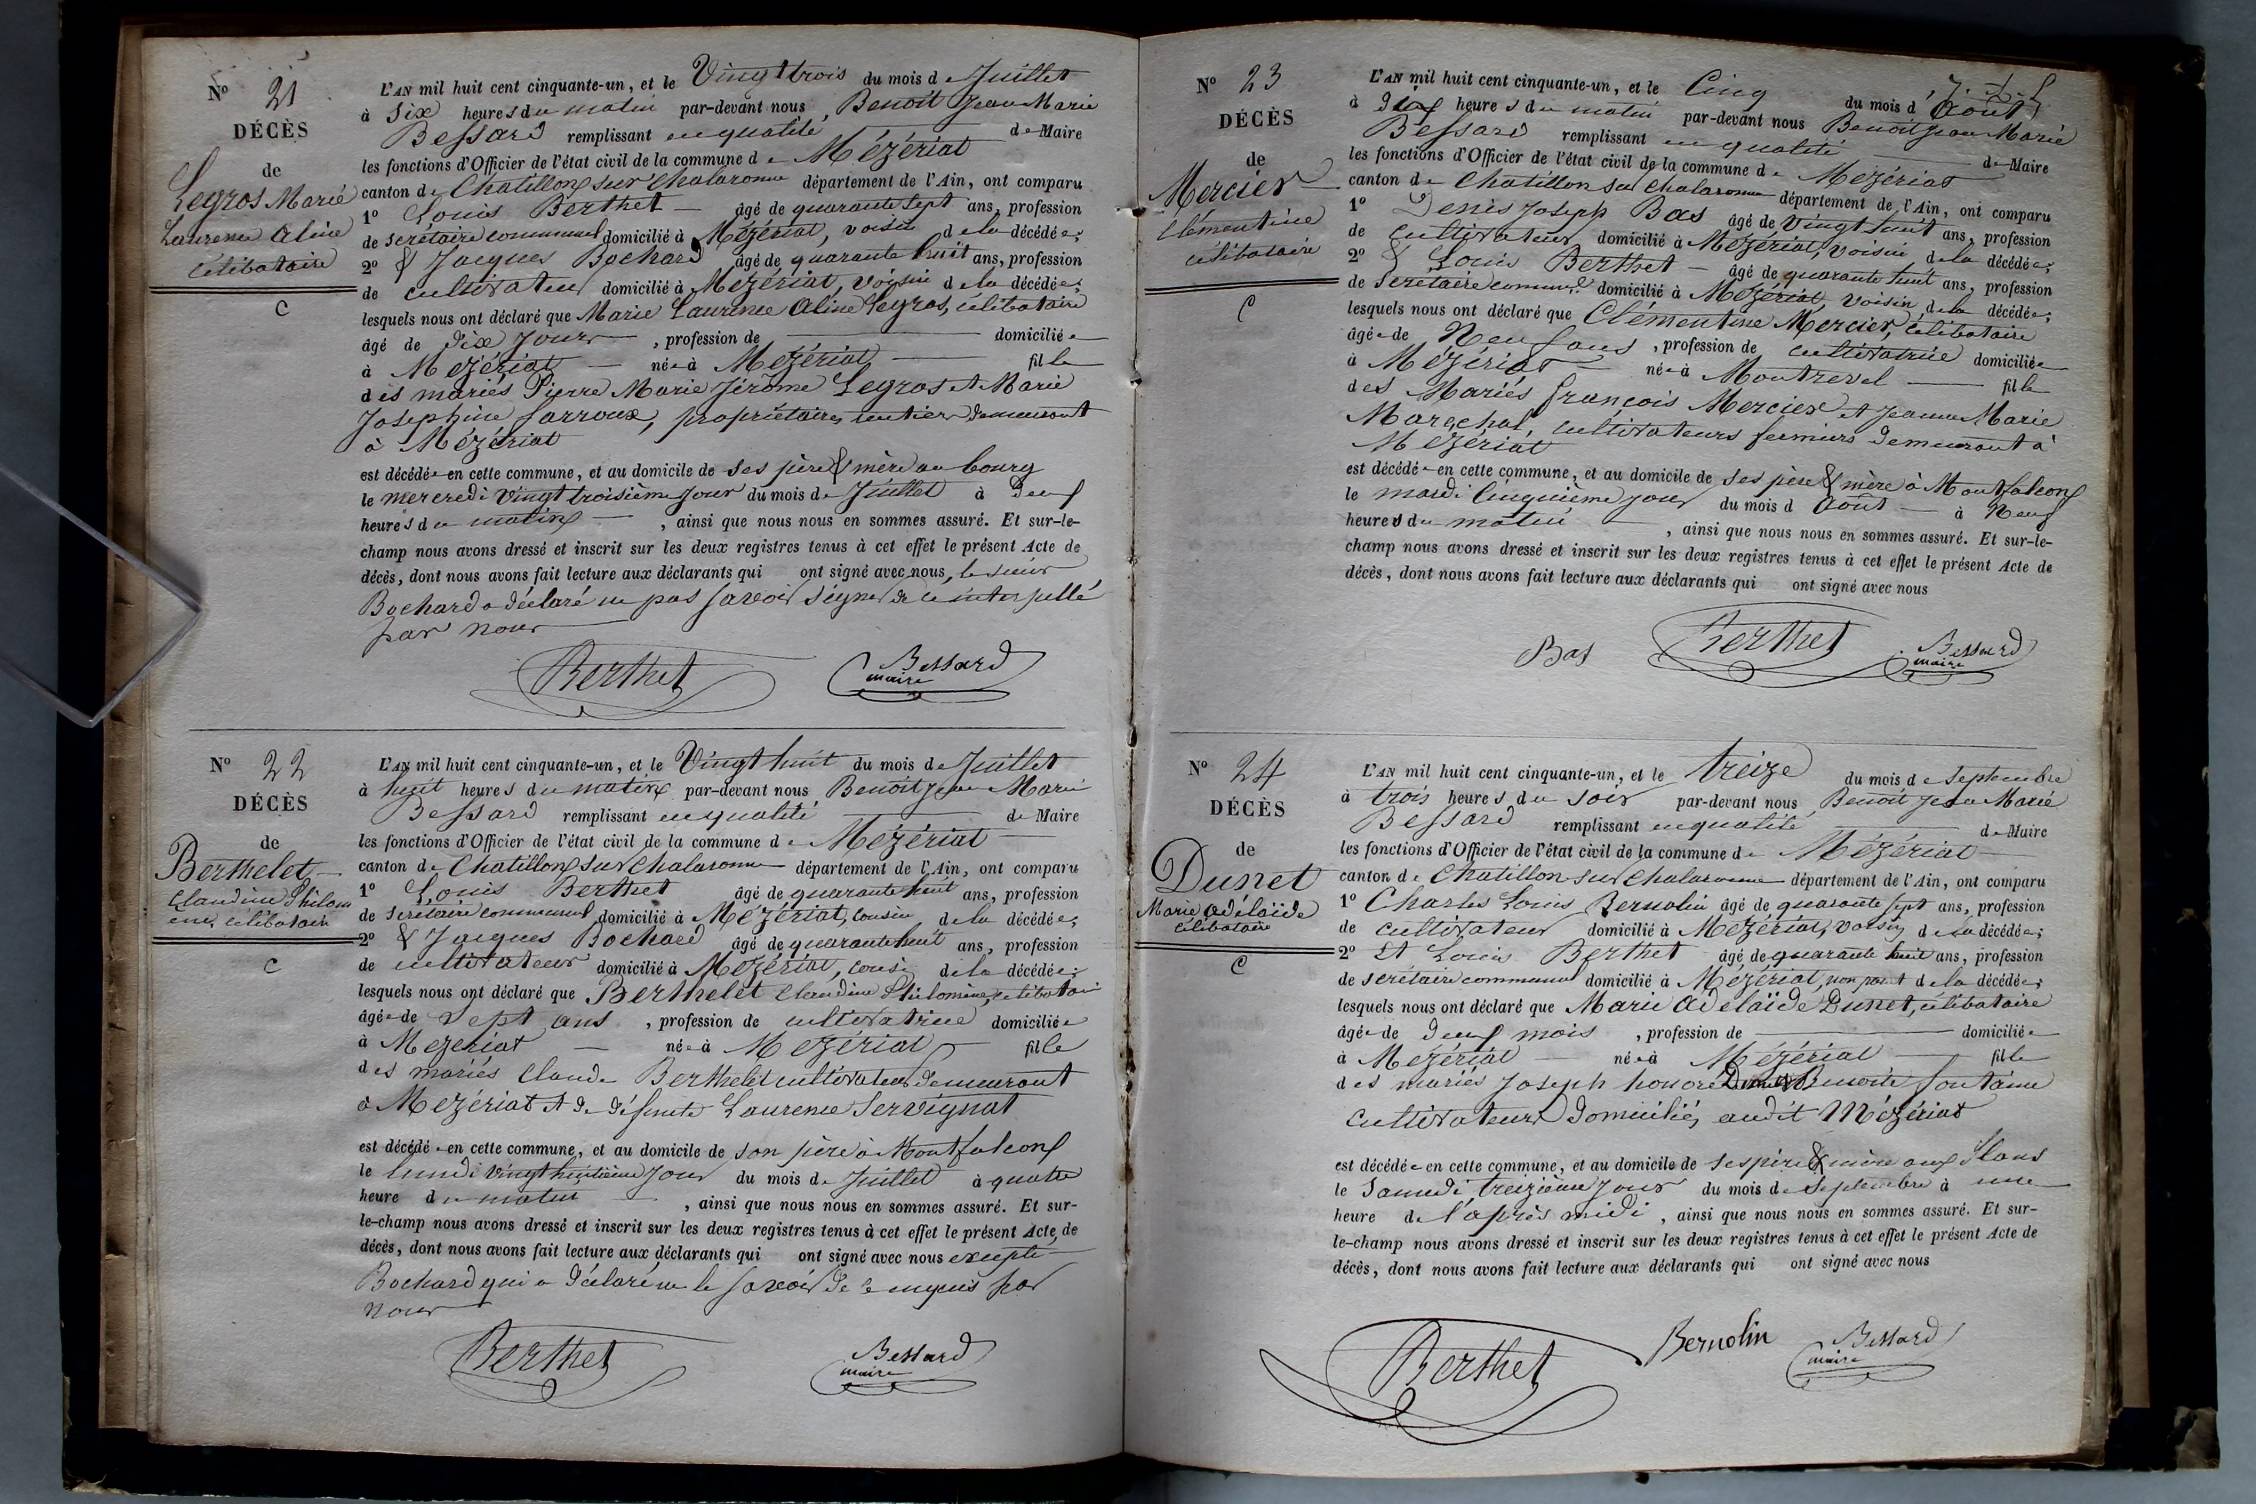 N° 21
DÉCÈS
de
Legros Marie
Laurence Aline
célibataire
C
L'AN mil huit cent cinquante-un, et le Vingt trois du mois de Juillet
à Six heures du matin par-devant nous Benoit Jean Marie
Bessard remplissant en qualité de Maire
les fonctions d'Officier de l'état civil de la commune de Mézériat
canton de Chatillon sur Chalaronne département de l'Ain, ont comparu
1° Louis Berthet âgé de quarante sept ans, profession
de secrétaire communal domicilié à Mézériat, voisin de la décédée;
2° & Jacques Bochard âgé de quarante huit ans, profession
de cultivateur domicilié à Mézériat, voisin de la décédée;
lesquels nous ont déclaré que Marie Laurence Aline Legros, célibataire
âgé de dix jours , profession de domiciliée
à Mézériat née à Mézériat fille
des mariés Pierre Marie Jérôme Legros et Marie
Josephine Sarroux, propriétaires rentiers demeurant
à Mézériat
est décédée en cette commune, et au domicile de ses père & mère au bourg
le mercredi vingt troisième jour du mois de Juillet à deux
heures du matin , ainsi que nous nous en sommes assuré. Et sur-le-
champ nous avons dressé et inscrit sur les deux registres tenus à cet effet le présent Acte de
décès, dont nous avons fait lecture aux déclarants qui ont signé avec nous, le sieur
Bochard a déclaré ne pas savoir signer de ce interpellé
par nous
Berthet Bessard
maire
N° 22
DÉCÈS
de
Berthelet
Claudine Philom
ène, célibataire
C
L'AN mil huit cent cinquante-un, et le Vingt huit du mois de Juillet
à huit heures du matin par-devant nous Benoit Jean Marie
Bessard remplissant en qualité de Maire
les fonctions d'Officier de l'état civil de la commune de Mézériat
canton de Chatillon sur Chalaronne département de l'Ain, ont comparu
1° Louis Berthet âgé de quarante huit ans, profession
de secrétaire communal domicilié à Mézériat, cousin de la décédée;
2° & Jacques Bochard âgé de quarante huit ans, profession
de cultivateur domicilié à Mézériat, cousin de la décédée;
lesquels nous ont déclaré que Berthelet Claudine Philomène, célibataire
âgée de sept ans , profession de cultivatrice domiciliée
à Mézériat née à Mézériat fille
des mariés Claude Berthelet cultivateur demeurant
à Mézériat et de défunte Laurence Servignat
est décédée en cette commune, et au domicile de son père à Montfalcon
le lundi vingt huitième jour du mois de Juillet à quatre
heure du matin , ainsi que nous nous en sommes assuré. Et sur-
le-champ nous avons dressé et inscrit sur les deux registres tenus à cet effet le présent Acte de
décès, dont nous avons fait lecture aux déclarants qui ont signé avec nous excepté
Bochard qui a déclaré ne le savoir de ce enquis par
nous
Berthet Bessard
maire
N° 23
DÉCÈS
de
Mercier
Clémentine
célibataire
C
L'AN mil huit cent cinquante-un, et le Cinq du mois d'Août
à dix heures du matin par-devant nous Benoit Jean Marie
Bessard remplissant en qualité de Maire
les fonctions d'Officier de l'état civil de la commune de Mézériat
canton de Chatillon sur Chalaronne département de l'Ain, ont comparu
1° Denis Joseph Bas âgé de vingt huit ans, profession
de cultivateur domicilié à Mézériat, voisin de la décédée;
2° & Louis Berthet âgé de quarante huit ans, profession
de Secrétaire communal domicilié à Mézériat, voisin de la décédée;
lesquels nous ont déclaré que Clémentine Mercier, célibataire
âgée de Neuf ans , profession de cultivatrice domiciliée
à Mézériat née à Montrevel fille
des Mariés françois Mercier et Jeanne Marie
Marechal, cultivateurs fermiers demeurant à
Mézériat
est décédée en cette commune, et au domicile de ses père & mère à Montfalcon
le mardi cinquième jour du mois d Août à Neuf
heures du matin , ainsi que nous nous en sommes assuré. Et sur-le-
champ nous avons dressé et inscrit sur les deux registres tenus à cet effet le présent Acte de
décès, dont nous avons fait lecture aux déclarants qui ont signé avec nous
Bas Berthet Bessard
maire
N° 24
DÉCÈS
de
Dunet
Marie adélaïde
célibataire
C
L'AN mil huit cent cinquante-un, et le treize du mois de Septembre
à trois heures du soir par-devant nous Benoit Jean Marie
Bessard remplissant en qualité de Maire
les fonctions d'Officier de l'état civil de la commune de Mézériat
canton de Chatillon sur Chalaronne département de l'Ain, ont comparu
1° Charles Louis Bernolin âgé de quarante sept ans, profession
de cultivateur domicilié à Mézériat, voisin de la décédée;
2° Et Louis Berthet âgé de quarante huit ans, profession
de secrétaire communal domicilié à Mézériat, non parent de la décédée;
lesquels nous ont déclaré que Marie adélaïde Dunet, célibataire
âgée de deux mois , profession de domiciliée
à Mézériat née à Mézériat fille
des mariés Joseph honoré Dunet & Benoite fontaine
cultivateurs domiciliés audit Mézériat
est décédée en cette commune, et au domicile de ses père & mère aux Ilons
le Samedi treizième jour du mois de Septembre à une
heure de l'après midi , ainsi que nous nous en sommes assuré. Et sur-
le-champ nous avons dressé et inscrit sur les deux registres tenus à cet effet le présent Acte de
décès, dont nous avons fait lecture aux déclarants qui ont signé avec nous
Berthet Bernolin Bessard
maire